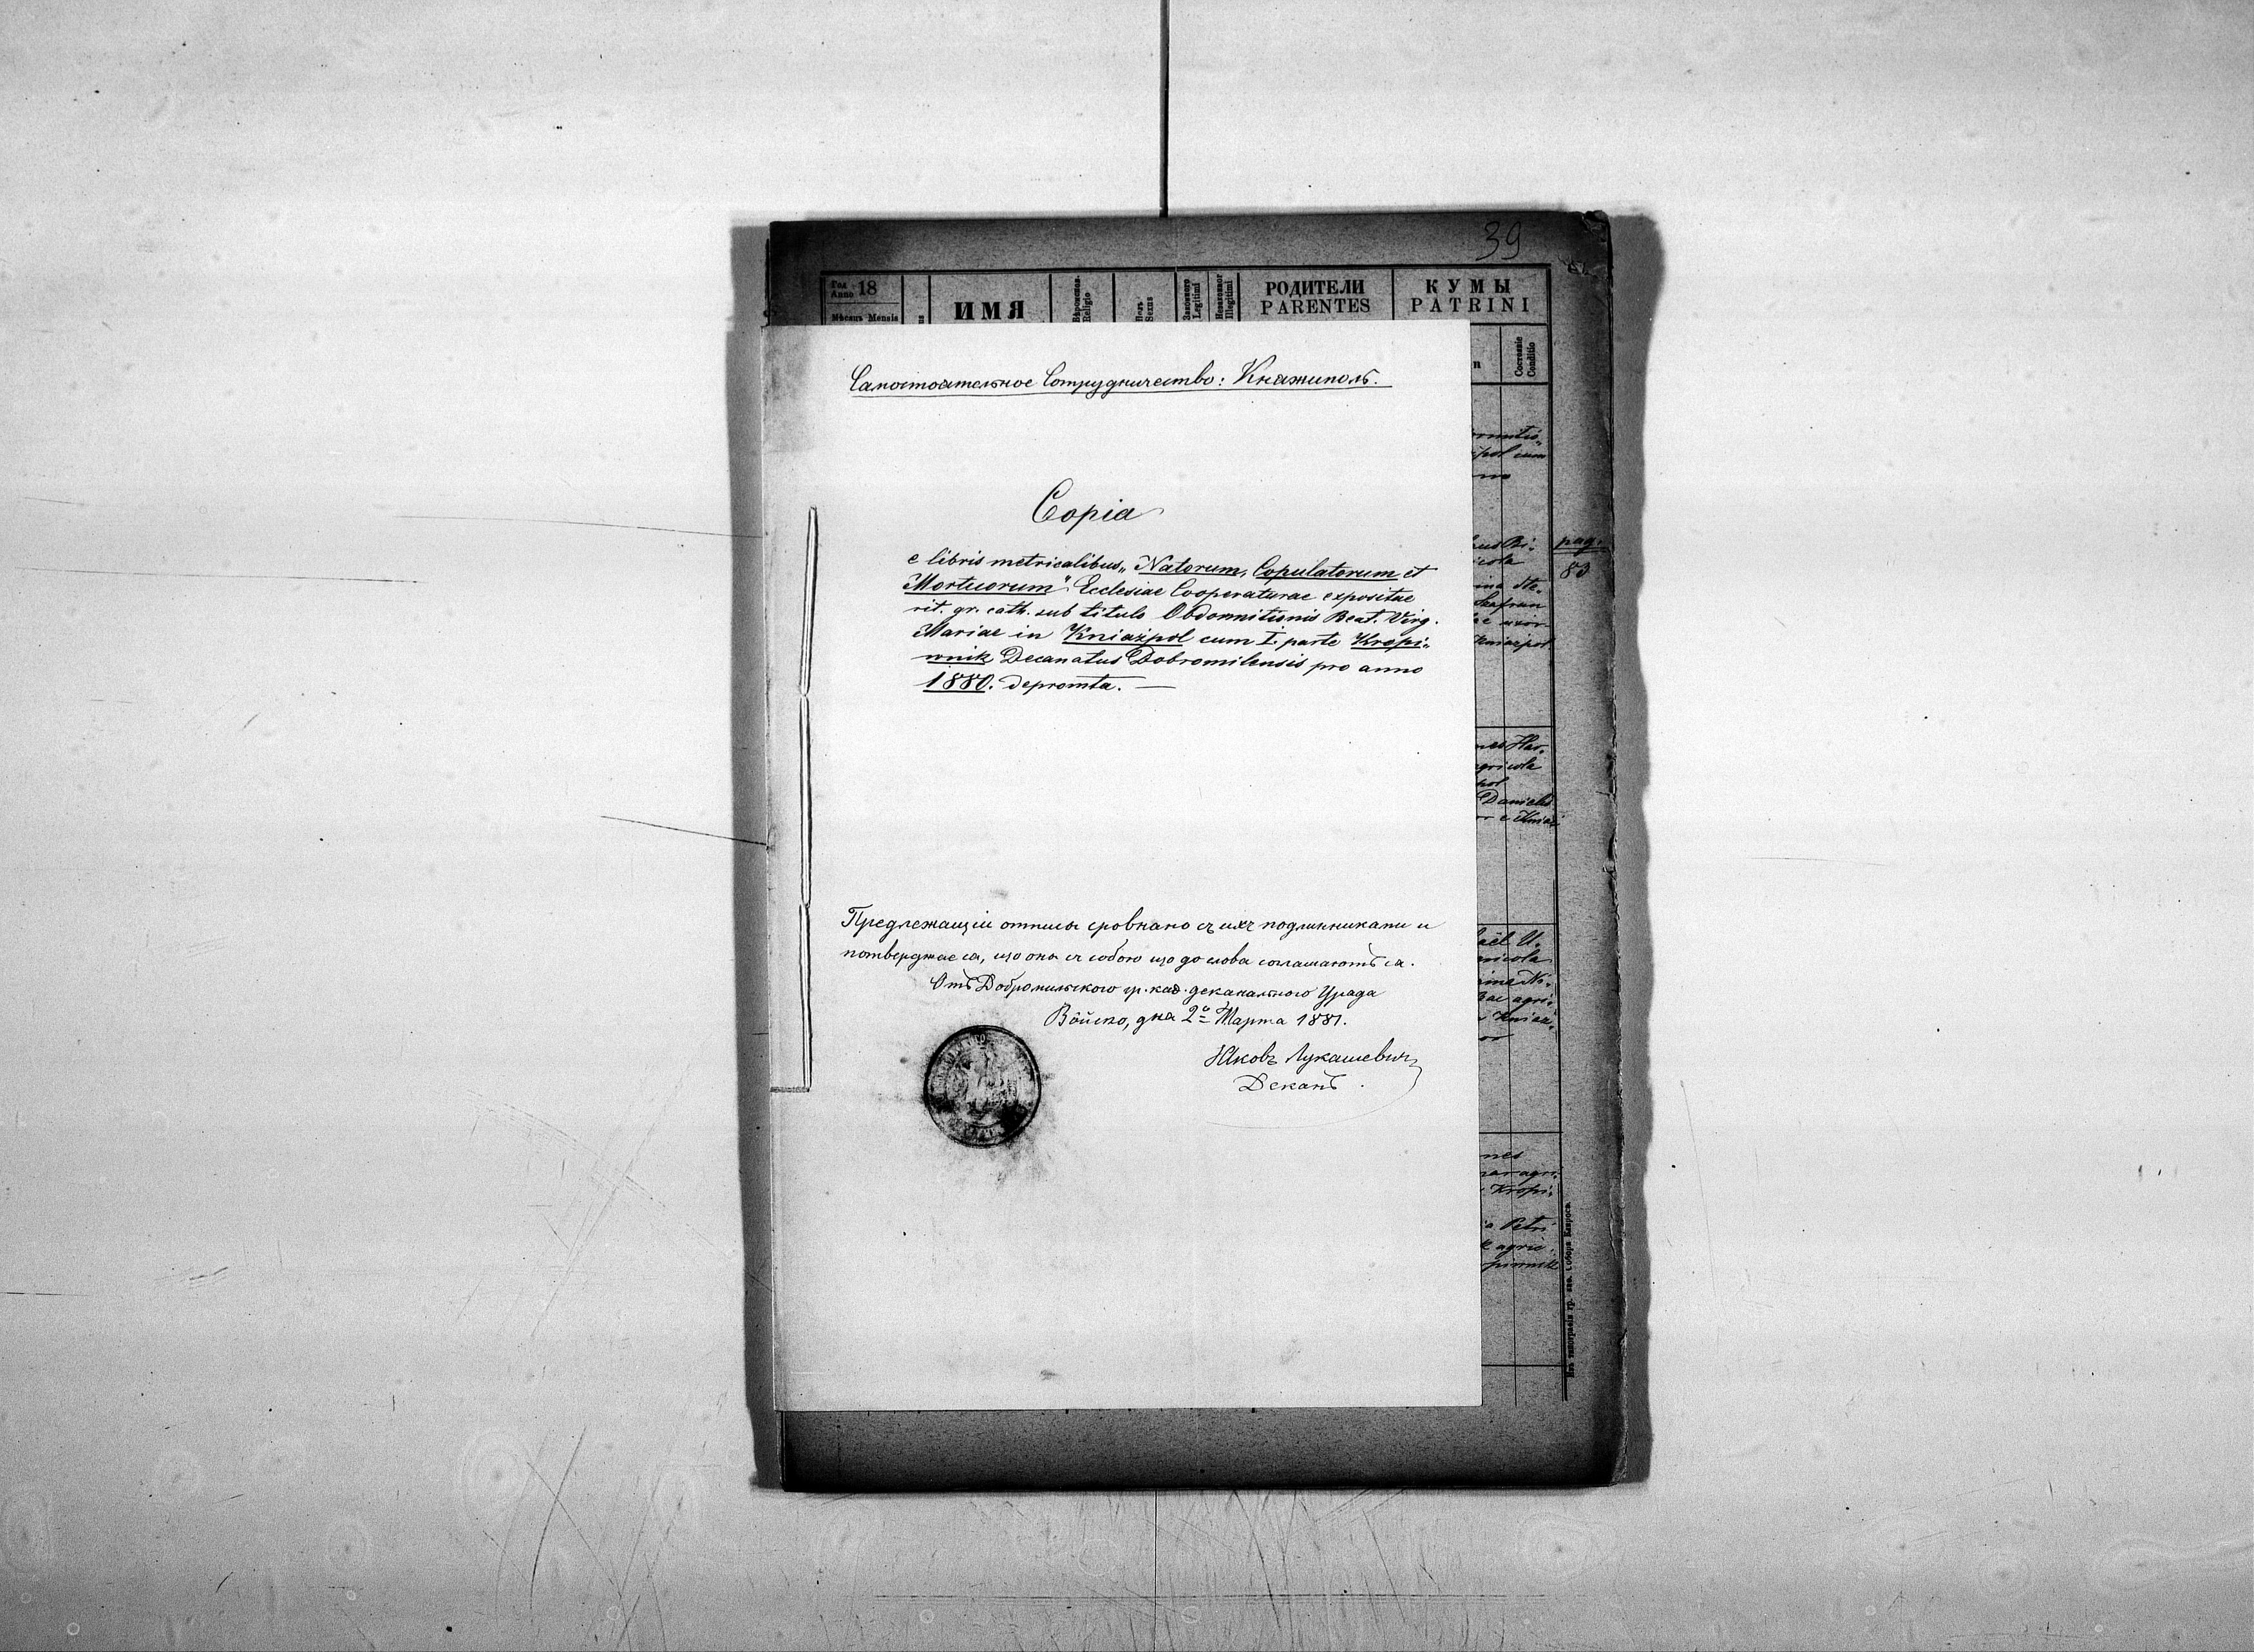 39
Год 18
Anno
Мѣсяць Mensis
ИМЯ
Religio
Полъ
Sexus
Законного
Legitimi
Illegitimi
РОДИТЕЛИ
PARENTES
КУМЫ
PATRINI
Состояніе
Conditio
Самостоятельное Сотрудничество: Княжиполь.
Copia
e libris metricalibus „Natorum, Copulatorum et
Mortuorum" Ecclesiae Cooperaturae expositae
rit. gr. cath. sub titulo Obdormitionis Beat. Virg.
Mariae in Kniażpol cum I. parte Kropi„
wnik Decanatus Dobromilensis pro anno
1880. depromta. —
Предлежащіи отписы сровнано съ ихъ подлинниками и
потверджае ся, що они съ собою що до слова соглашаютъ ся.
Отъ Добромильского гр. каѳ. деканального Уряда
Войско, дня 2º Марта 1881.
Яковъ Лукашевичъ
Деканъ.
pag.
83
agricola
Danielis